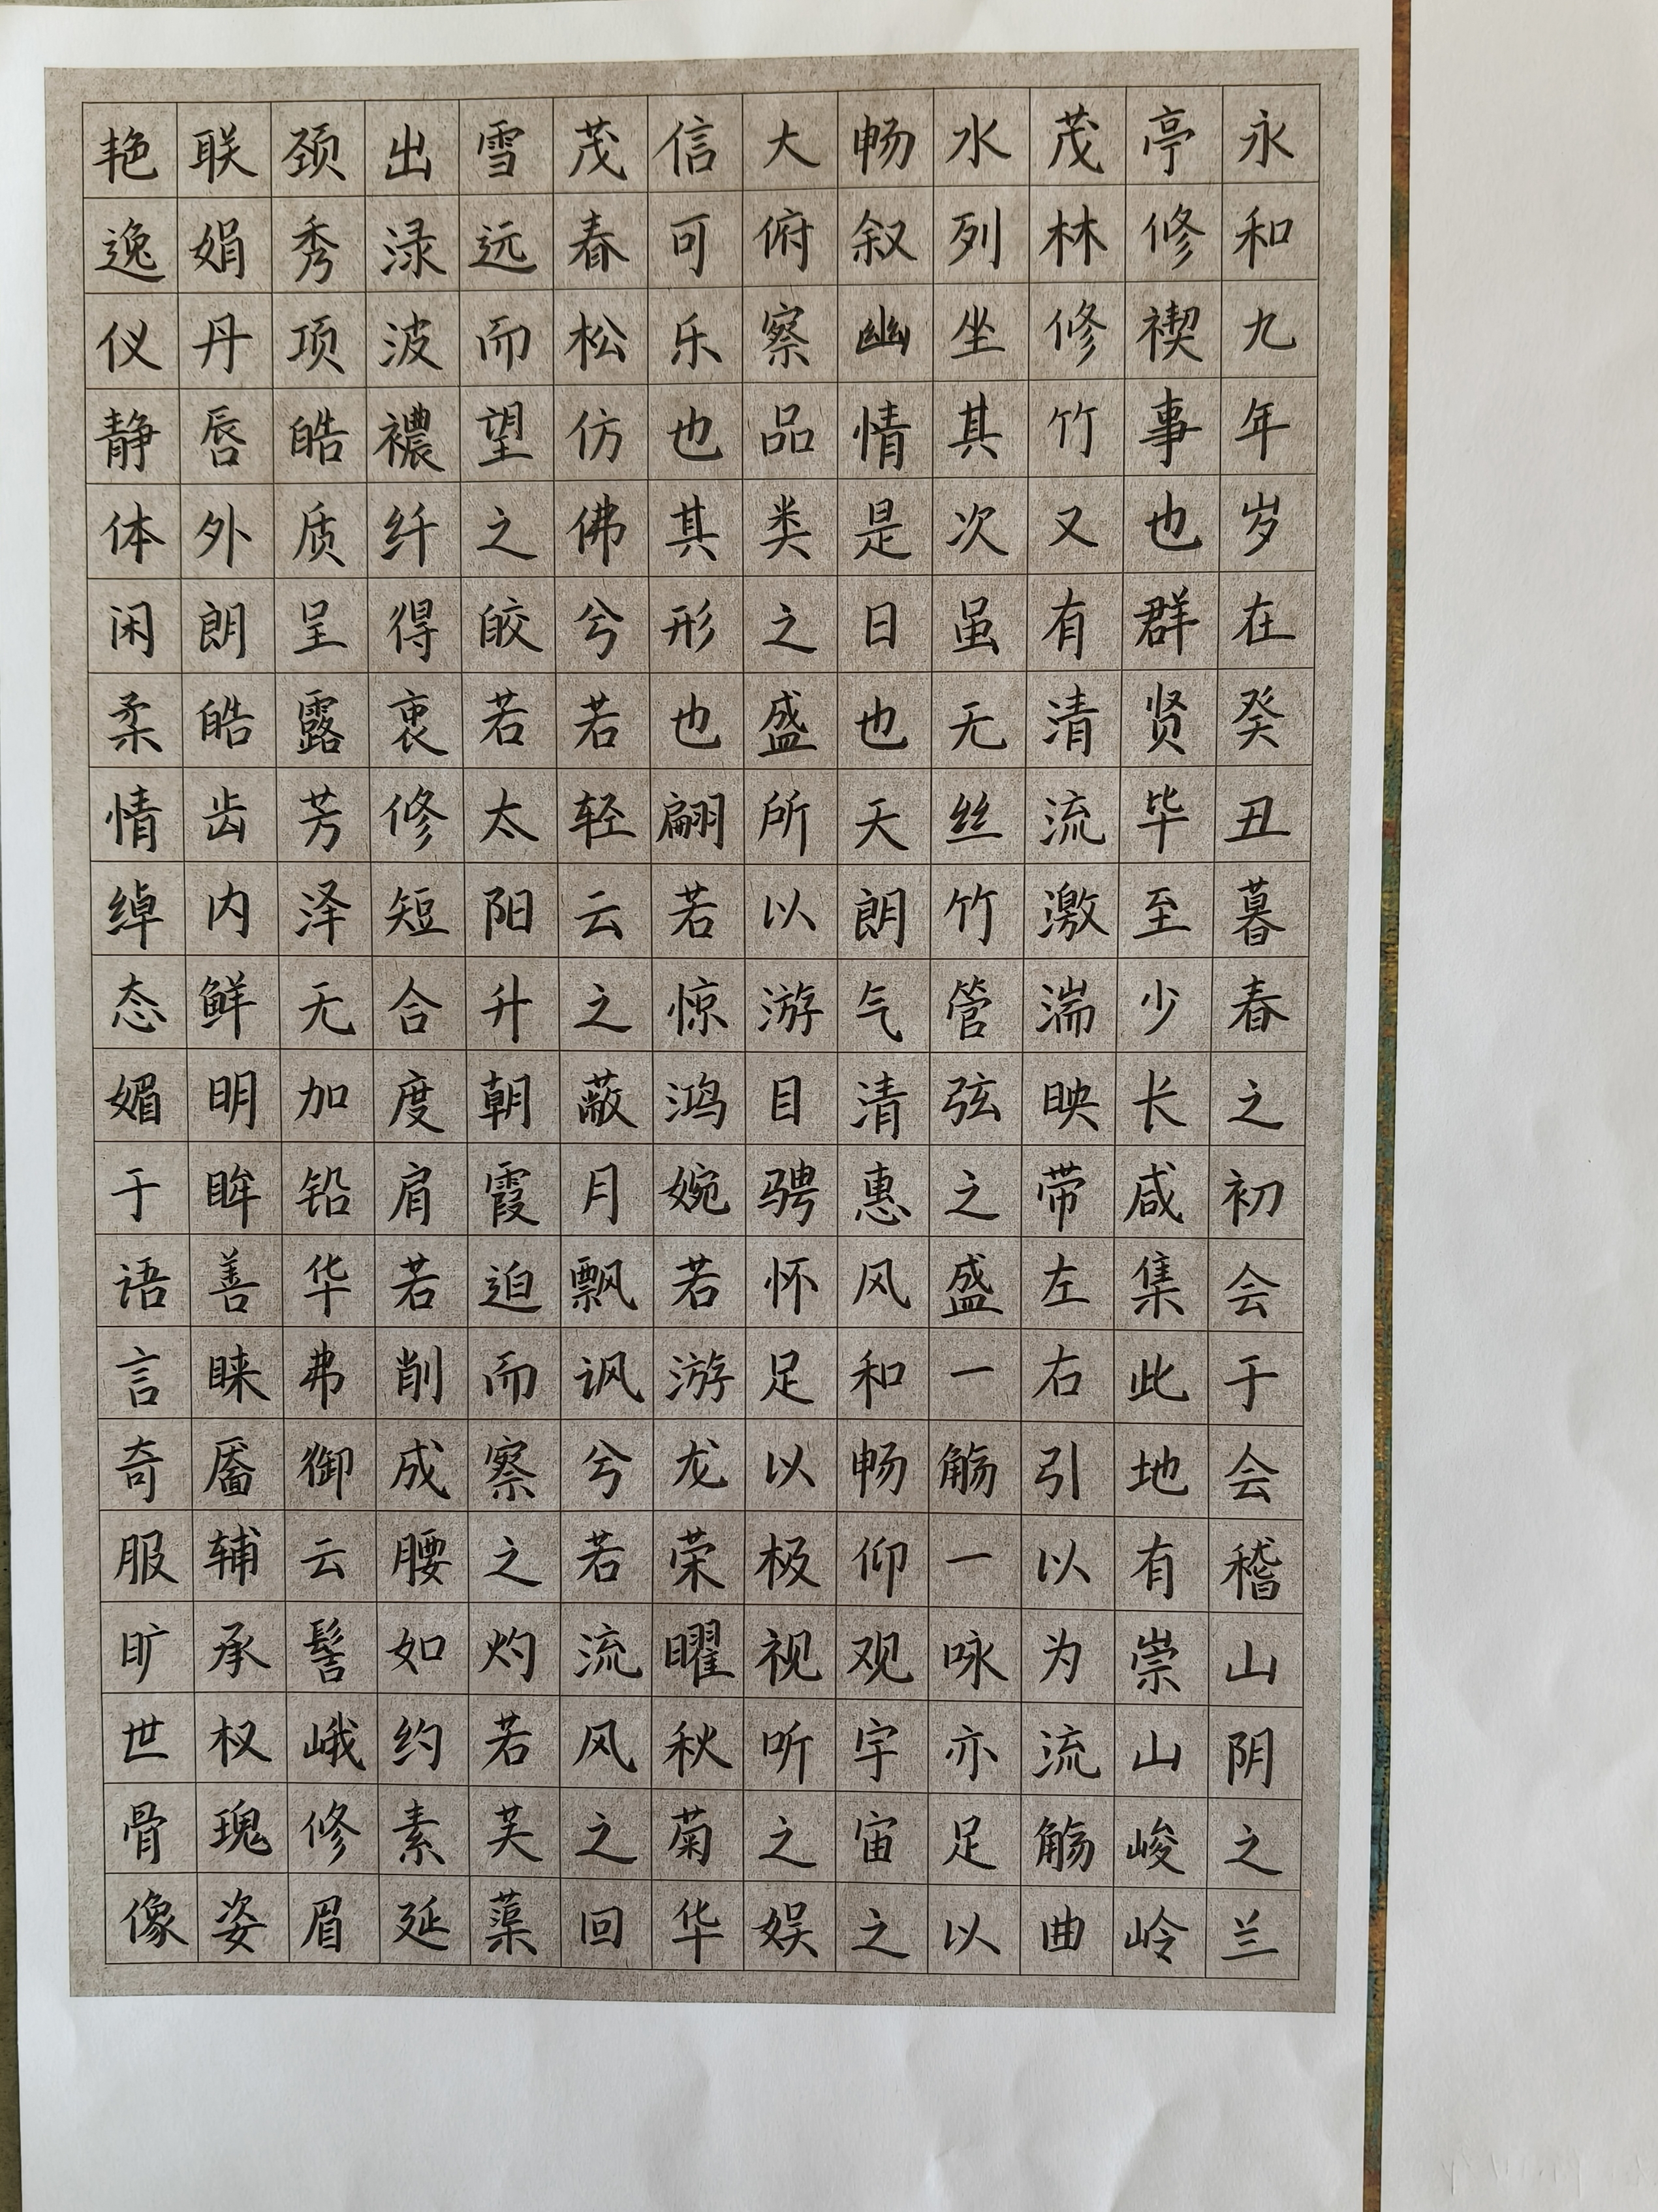 永和九年岁在癸丑暮春之初会于会稽山阴之兰
亭修禊事也群贤毕至少长咸集此地有崇山峻岭
茂林修竹又有清流激湍映带左右引以为流觞曲
水列坐其次虽无丝竹管弦之盛一觞一咏亦足以
畅叙幽情是日也天朗气清惠风和畅仰观宇宙之
大俯察品类之盛所以游目骋怀足以极视听之娱
信可乐也其形也翩若惊鸿婉若游龙荣曜秋菊华
茂春松仿佛兮若轻云之蔽月飘讽兮若流风之回
雪远而望之皎若太阳升朝霞迫而察之灼若芙蕖
出渌波襛纤得衷修短合度肩若削成腰如约素延
颈秀项皓质呈露芳泽无加铅华弗御云髻峨修眉
联娟丹唇外朗皓齿内鲜明眸善睐靥辅承权瑰姿
艳逸仪静体闲柔情绰态媚于语言奇服旷世骨像